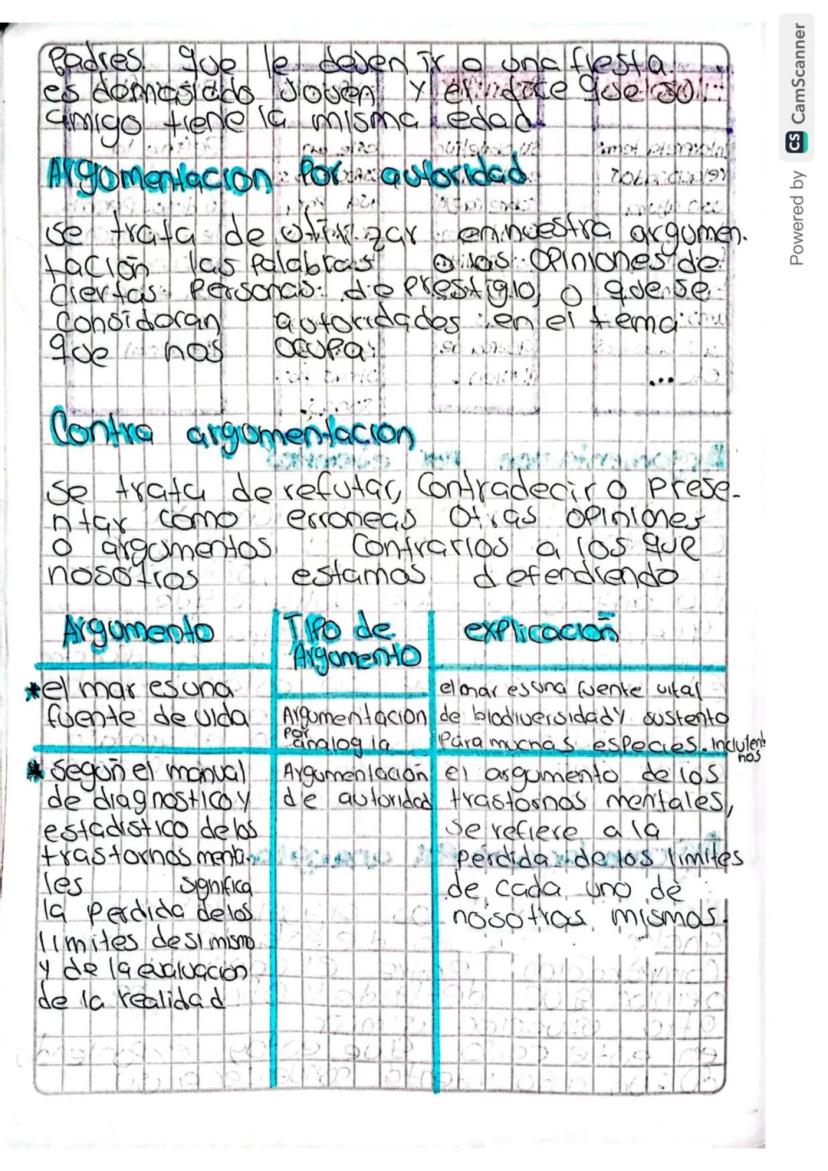 Padres que le deven ir a una fiesta
es demasiado Joven y el dice que su
amigo tiene la misma edad
Argumentacion Por autoridad
se trata de utilizar en nuestra argumen.
tación las Palabras o las opiniones de
ciertas Personas de Prestigio, o que se
considoran autoridades en el tema
que nos ocupa:
...
Contra argumentacion
se trata de refutar, contradecir o prese-
ntar como erroneas otras opiniones
o argumentos contrarios a los que
nosotros estamos defendiendo
Argumento
Tipo de
Argumento
explicacion
*el mar es una
fuente de vida
Argumentacion
por
analogia
el mar es una fuente vital
de biodiversidad y sustento
para muchas especies. incluien
nos
* según el manual
de diagnostico y
estadistico de los
trastornos menta.
les significa
la perdida de los
limites de si mismo
y de la evaluación
de la realidad
Argumentación
de autoridad
el argumento de los
trastosnos mentales,
se refiere a la
perdida de los limites
de cada uno de
nosotros mismos.
Powered by CS CamScanner